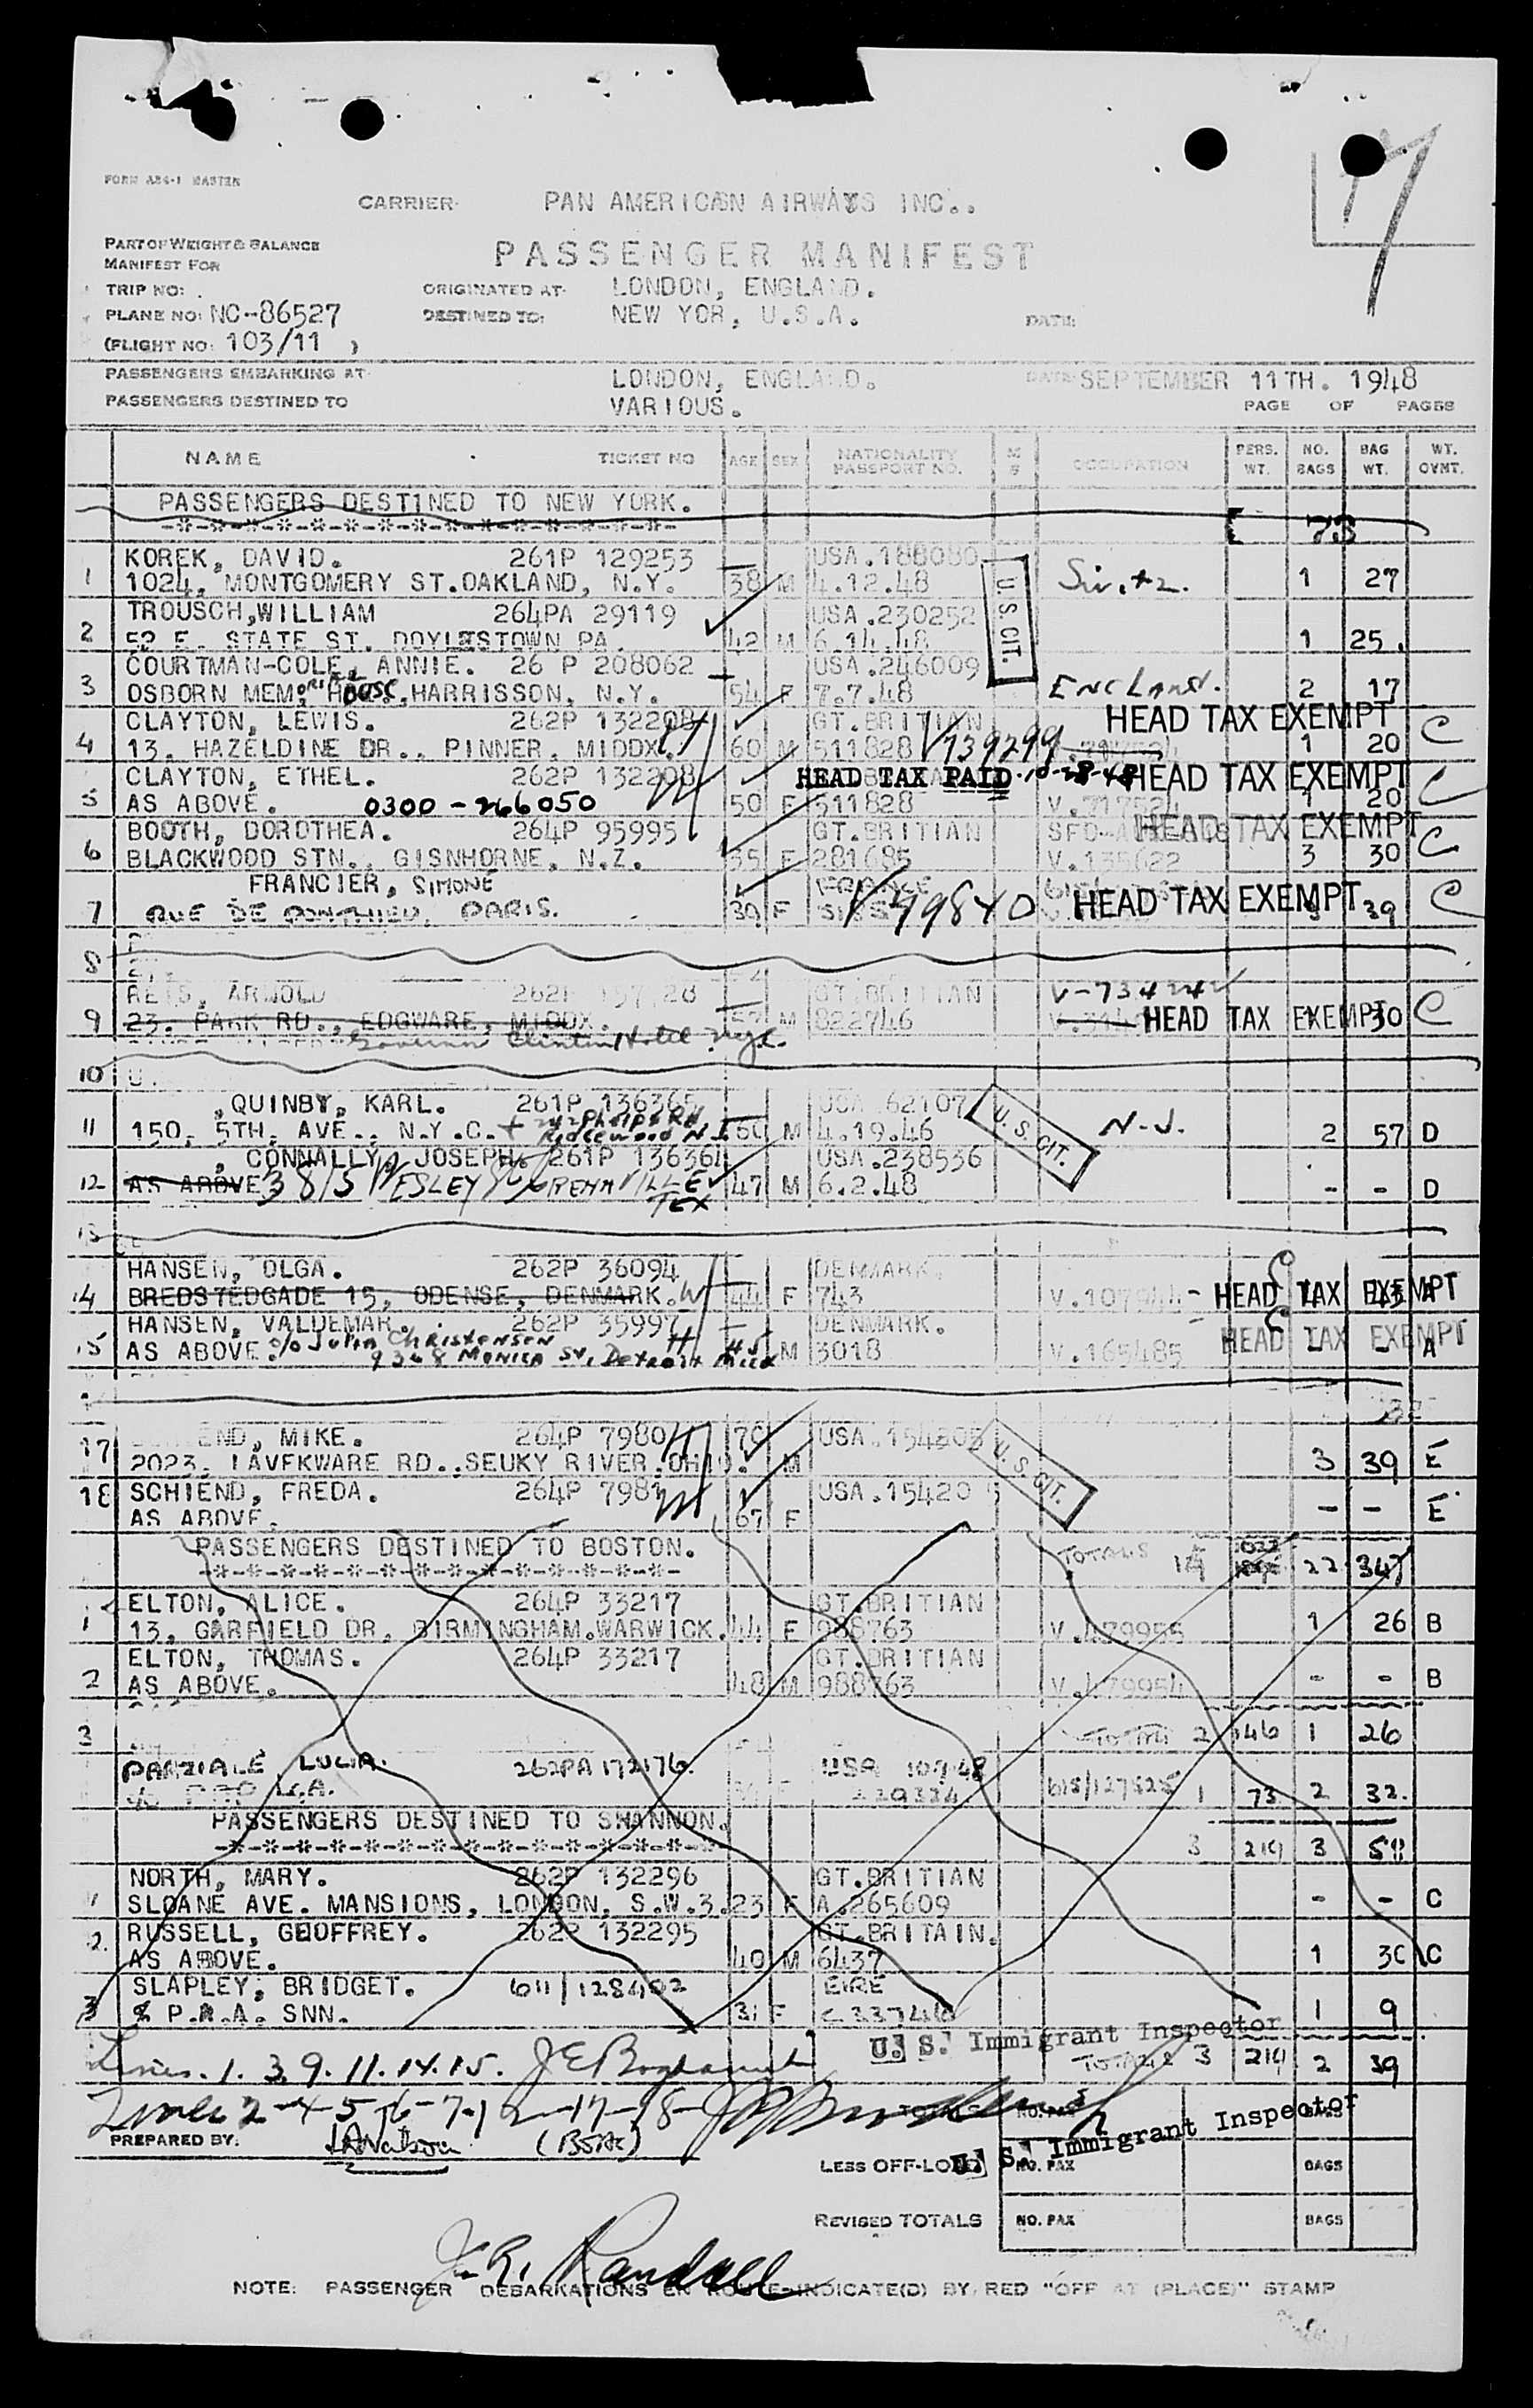 FORM AB4-1 MASTER
CARRIER PAN AMERICAN AIRWAYS INC..
PART OF WEIGHT & BALANCE
MANIFEST FOR
PASSENGER MANIFEST
TRIP NO: ORIGINATED AT LONDON, ENGLAND.
PLANE NO: NC-86527 DESTINED TO: NEW YOR, U.S.A. DATE:
(FLIGHT NO: 103/11 )
PASSENGERS EMBARKING AT LONDON, ENGLAND. DATE SEPTEMBER 11TH. 1948
PASSENGERS DESTINED TO VARIOUS. PAGE OF PAGES
NAME TICKET NO AGE SEX NATIONALITY PASSPORT NO. M S OCCUPATION PERS. WT. NO. BAGS BAG WT. WT. OVMT.
PASSENGERS DESTINED TO NEW YORK.
-*-*-*-*-*-*-*-*-*-*-*-*-*-*-*- 73
KOREK, DAVID. 261P 129253 USA.188080
1 1024, MONTGOMERY ST.OAKLAND, N.Y. 38 M 4.12.48 U.S.CIT. 1 27
TROUSCH,WILLIAM 264PA 29119 USA.230252
2 52 E. STATE ST. DOYLESTOWN PA. 42 M 6.14.48 1 25.
COURTMAN-COLE, ANNIE. 26 P 208062 USA.246009
3 OSBORN MEM. HOUSE,HARRISSON, N.Y. 54 F 7.7.48 ENGLAND. 2 17
CLAYTON, LEWIS. 262P 132208 GT.BRITIAN HEAD TAX EXEMPT C
4 13. HAZELDINE DR., PINNER, MIDDX. 60 M 511828 V739299 1 20
CLAYTON, ETHEL. 262P 132208 HEAD TAX PAID 10-28-48 HEAD TAX EXEMPT C
5 AS ABOVE. 0300-266050 50 F 511828 1 20
BOOTH, DOROTHEA. 264P 95995 GT.BRITIAN HEAD TAX EXEMPT C
6 BLACKWOOD STN., GISNHORNE, N.Z. 35 F 281685 V.135622 3 30
FRANCIER, SIMONE FRANCE
7 RUE DE PONTHIEU, PARIS. 39 F V49840 HEAD TAX EXEMPT 39 C
8
ARNOLD GT.BRITIAN V-734242
9 23. PARK RD., EDGWARE, MIDDX. 57 M 822746 HEAD TAX EXEMPT 30 C
Governor Clinton Hotel nyc.
10
,QUINBY, KARL. 261P 136365 USA 62107
11 150, 5TH. AVE., N.Y.C. + 242 Phelps Rd Ridgewood N J. 60 M 4.19.46 U.S.CIT. N.J. 2 57 D
, CONNALLY, JOSEPH. 261P 136364 USA.238536
12 AS ABOVE 3815 WESLEY St GREENVILLE TEX 47 M 6.2.48 - - D
13
HANSEN, OLGA. 262P 36094 DENMARK.
14 BREDSTEDGADE 15, ODENSE, DENMARK. W 44 F 743 V.107944 - HEAD TAX EXEMPT A
HANSEN, VALDEMAR. 262P 35997 DENMARK.
15 AS ABOVE. c/o Julia Christensen 9368 MONICA St, Detroit Mich 45 M 3018 V.165485 HEAD TAX EXEMPT A
END, MIKE. 264P 7980 70 USA.154205
17 2023. LAVEKWARE RD..SEUKY RIVER.OHIO. M U.S.CIT. 3 39 E
18 SCHIEND, FREDA. 264P 7981 USA.15420
AS ABOVE. 67 F - - E
PASSENGERS DESTINED TO BOSTON. TOTALS 14 22 347
-*-*-*-*-*-*-*-*-*-*-*-*-*-*-
ELTON, ALICE. 264P 33217 GT.BRITIAN
1 13, GARFIELD DR, BIRMINGHAM.WARWICK. 44 F 988763 V.479955 1 26 B
ELTON, THOMAS. 264P 33217 GT.BRITIAN
2 AS ABOVE. 48 M 988763 V.479954 - - B
3 TOTAL 2 146 1 26
PARZIALE LUCIA. 262PA 172176 USA 10.9.48
229334 615/127525 1 73 2 32.
PASSENGERS DESTINED TO SHANNON.
-*-*-*-*-*-*-*-*-*-*-*-*-*-*-*- 3 219 3 58
NORTH, MARY. 262P 132296 GT.BRITIAN
1 SLOANE AVE. MANSIONS, LONDON, S.W.3. 23 F A.265609 - - C
RUSSELL, GEOFFREY. 262P 132295 GT.BRITAIN.
2. AS ABOVE. 40 M 6437 1 30 C
SLAPLEY, BRIDGET. 611/128402 EIRE
3 % P.A.A. SNN. 31 F C 33746 1 9
U. S. Immigrant Inspector
Lines. 1. 3. 9. 11. 14. 15. TOTALS 3 219 2 39
Lines 2-4-5-6-7-12-17-18- TOTALS NO. PAX BAGS
PREPARED BY: (BOAC) U. S. Immigrant Inspector
LESS OFF-LOAD NO. PAX BAGS
REVISED TOTALS NO. PAX BAGS
J. R. Randall
NOTE: PASSENGER DEBARKATIONS EN ROUTE-INDICATE(D) BY RED "OFF AT (PLACE)" STAMP